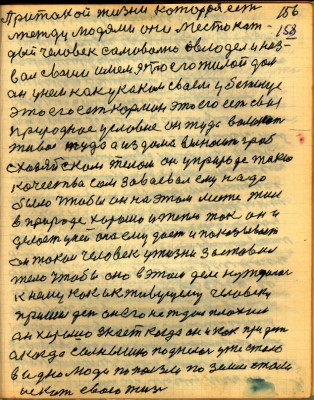 При такой жизни которая есть 156
между людями они место каж- 158
дый человек самовольно овсгодел и наз-
вал своим имем это его жилой дом
он у нем как у каком своем убежище
это его есть кормит это его есть свои
природное условие он туда
живое туда а из дома выносит гроб
с хозяйском телом он у природе такие
качества сам завоевал ему надо
было чтобы он на этом месте жил
в природе хорошо и тепло так он и
делает у ней она ему дает и показывает
он такой человек у жизни заставил
тело чтобы оно в этом деле нуждалося
к нему как и к живущему человеку
пришел ден он его не ждал плохий
он хорошо знает когда он и как придет
а когда солнышко поднялося уже стало
видно люди пополозли по земле стали
искать своего жизн